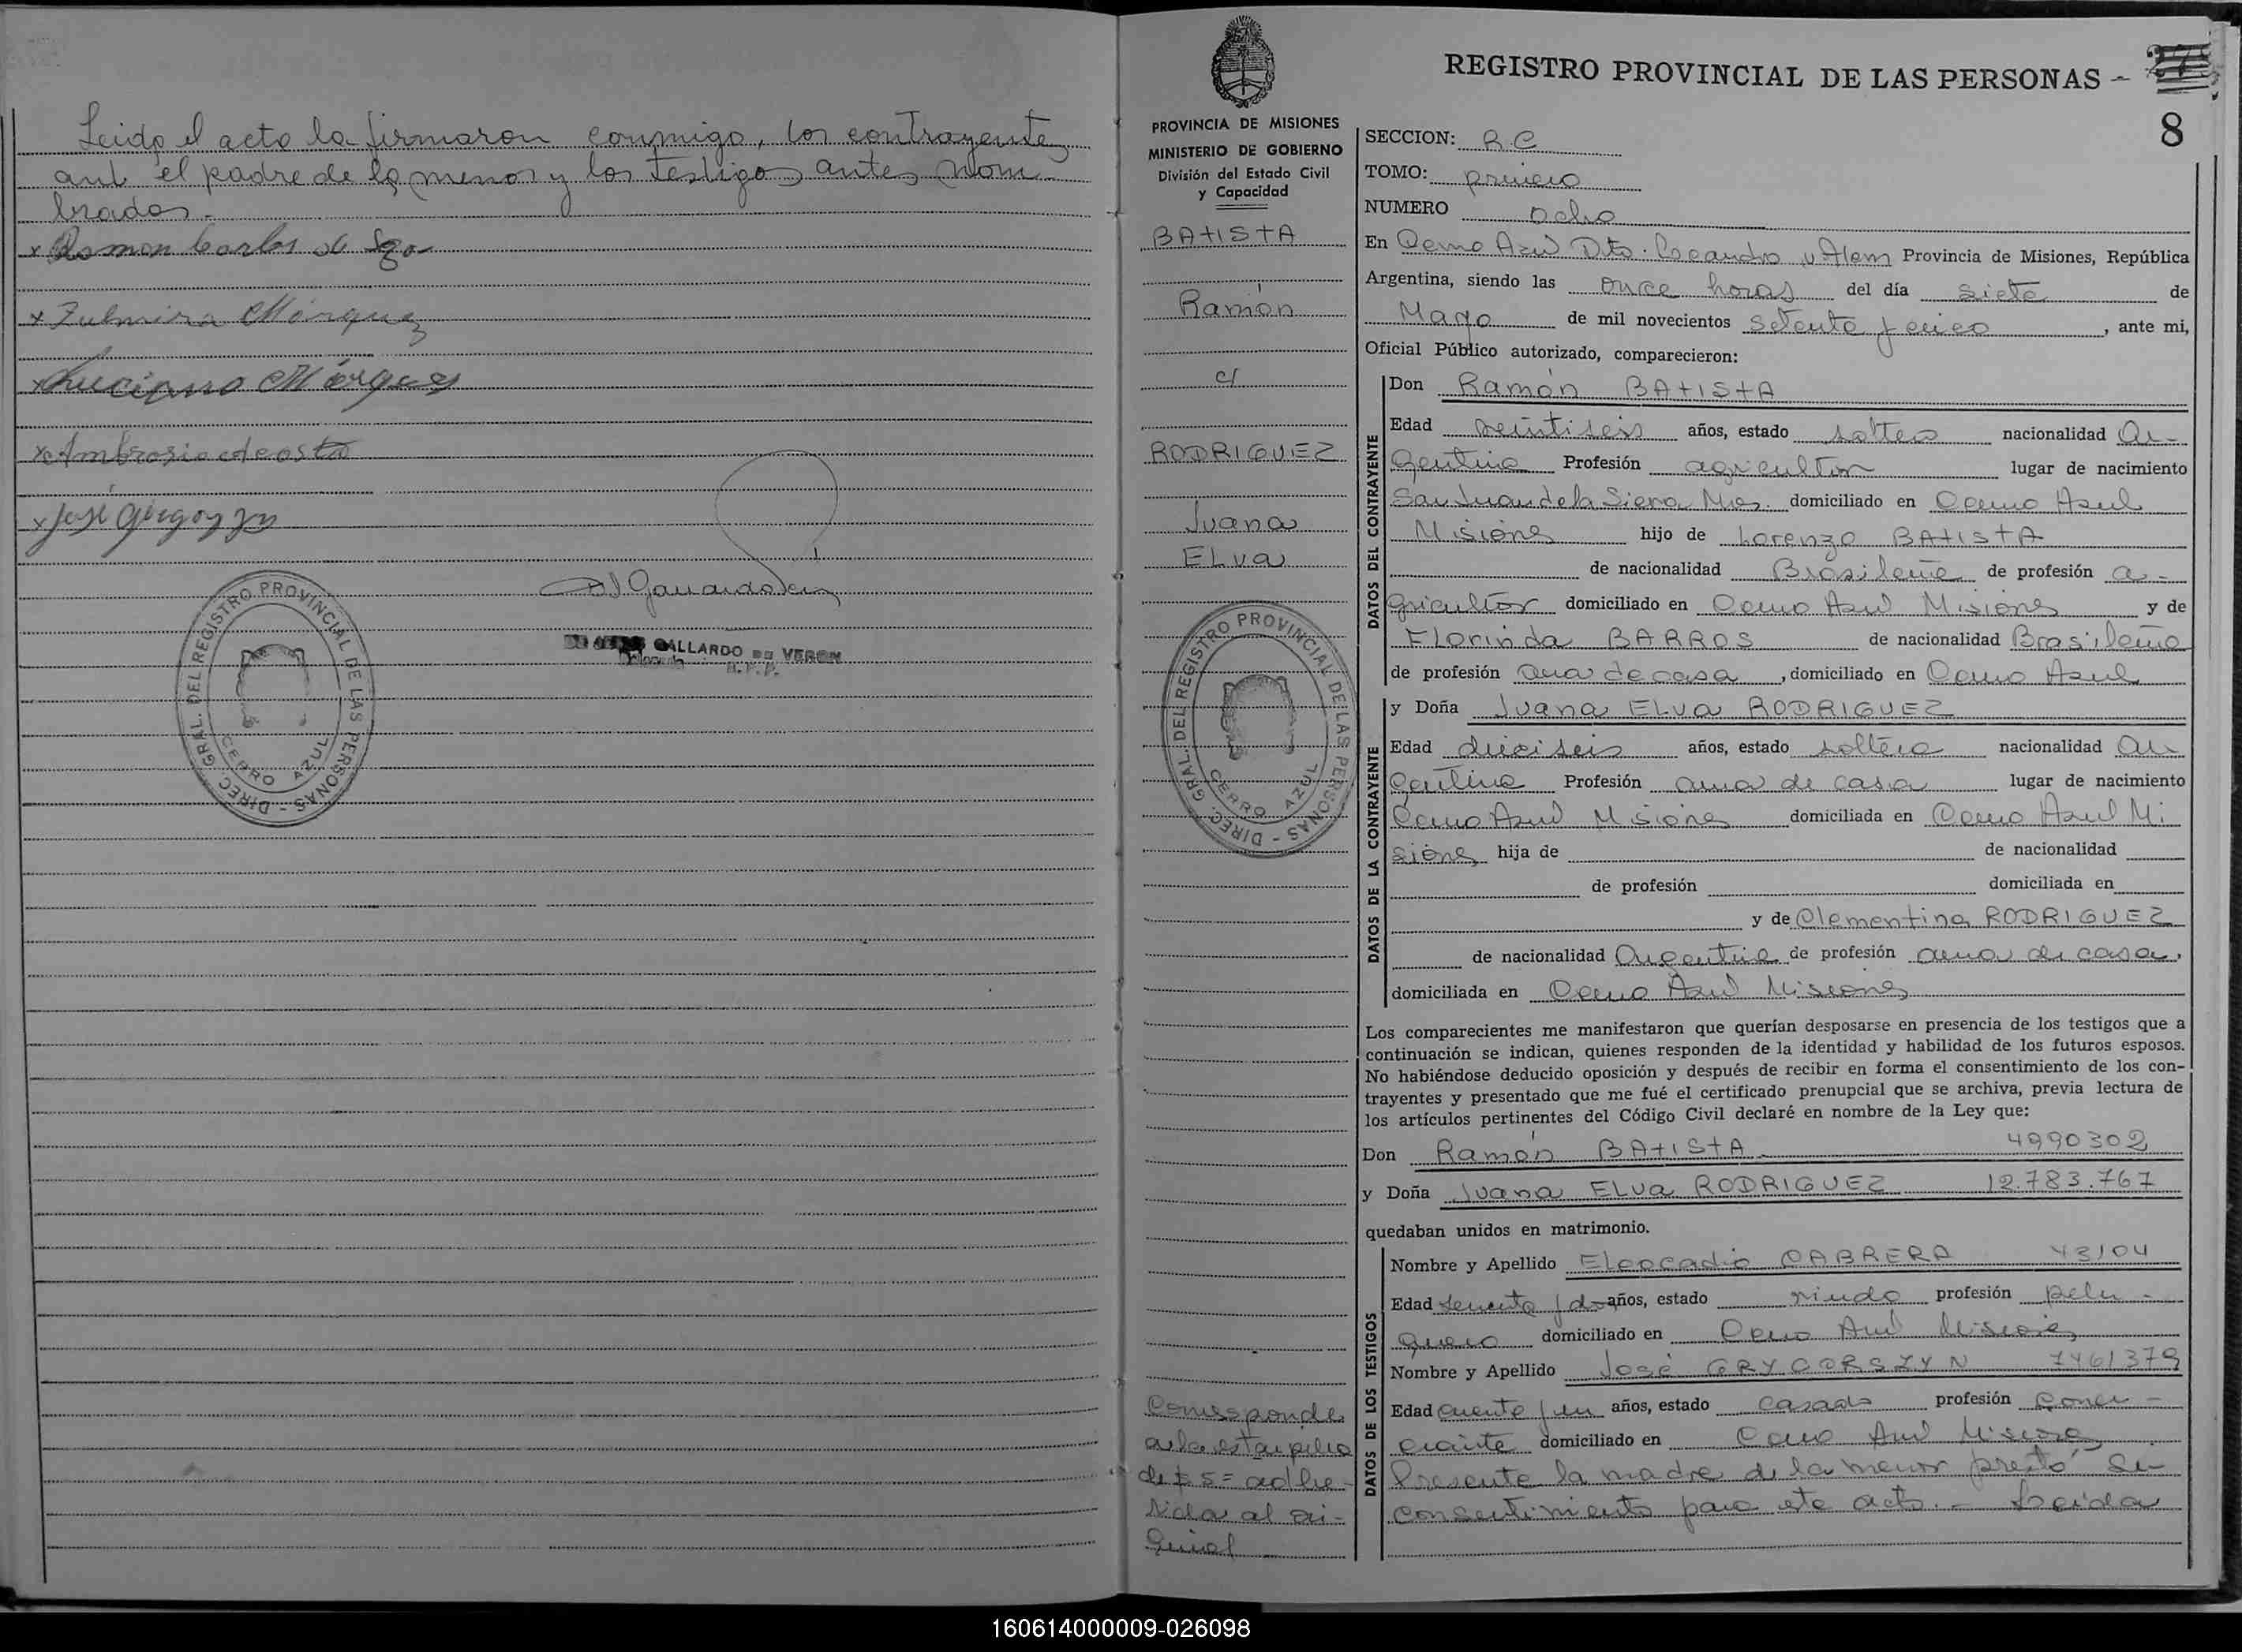 Leido el acto la firmaron conmigo, los contrayente
ant el padre de la menor y los testigos antes nom-
brados.-
x Ramon Carlos
x Zulmira Márquez
x Luciano Márquez
x Ambrosio
x José
GALLARDO DE VERON
R.P.P.
DIREC. GRAL. DEL REGISTRO PROVINCIAL DE LAS PERSONAS -
CERRO AZUL
PROVINCIA DE MISIONES
MINISTERIO DE GOBIERNO
División del Estado Civil
y Capacidad
BATISTA
Ramón
c/
RODRIGUEZ
Juana
ELva
DIREC. GRAL. DEL REGISTRO PROVINCIAL DE LAS PERSONAS -
CERRO AZUL
Corresponde
a la estampilla
de $ 5= adhe-
rida al ori-
ginal
REGISTRO PROVINCIAL DE LAS PERSONAS -
8
SECCION: R.C
TOMO: primero
NUMERO ocho
En Cerro Azul Dto. Leandro N Alem Provincia de Misiones, República
Argentina, siendo las once horas del día siete de
Mayo de mil novecientos setenta y cinco, ante mi,
Oficial Público autorizado, comparecieron:
DATOS DEL CONTRAYENTE
Don Ramón BATISTA
Edad veintiseis años, estado soltero nacionalidad Ar-
gentino Profesión agricultor lugar de nacimiento
San Juan de la Siera Mnes. domiciliado en Cerro Azul
Misiones hijo de Lorenzo BATISTA
de nacionalidad Brasileña de profesión a-
gricultor domiciliado en Cerro Azul Misiones y de
FLorinda BARROS de nacionalidad Brasileña
de profesión ama de casa, domiciliado en Cerro Azul
DATOS DE LA CONTRAYENTE
y Doña Juana ELva RODRIGUEZ
Edad dieciseis años, estado soltera nacionalidad Ar-
gentina Profesión ama de casa lugar de nacimiento
Cerro Azul Misiones domiciliada en Cerro Azul Mi
siones hija de de nacionalidad
de profesión domiciliada en
y de Clementina RODRIGUEZ
de nacionalidad Argentina de profesión ama de casa,
domiciliada en Cerro Azul Misiones
Los comparecientes me manifestaron que querían desposarse en presencia de los testigos que a
continuación se indican, quienes responden de la identidad y habilidad de los futuros esposos.
No habiéndose deducido oposición y después de recibir en forma el consentimiento de los con-
trayentes y presentado que me fué el certificado prenupcial que se archiva, previa lectura de
los artículos pertinentes del Código Civil declaré en nombre de la Ley que:
Don Ramón BATISTA 4990302
y Doña Juana ELva RODRIGUEZ 12.783.767
quedaban unidos en matrimonio.
DATOS DE LOS TESTIGOS
Nombre y Apellido ELeocadio CABRERA 43104
Edad sesenta y dos años, estado viudo profesión pelu-
quero domiciliado en Cerro Azul Misiones
Nombre y Apellido José GRYGORSZYN 7461379
Edad cuenta y un años, estado casado profesión comer-
ciante domiciliado en Cerro Azul Misiones
Presente la madre de la menor prestó su
consentimiento para este acto.- Leida
160614000009-026098